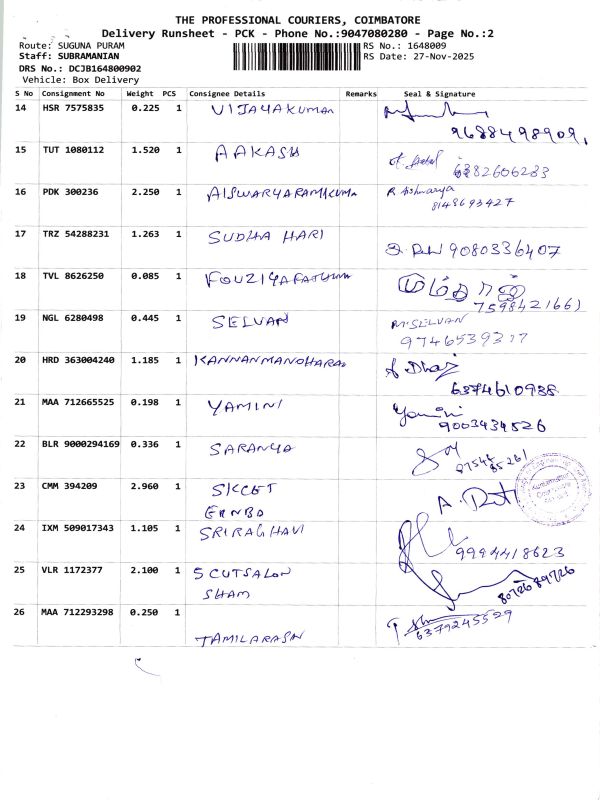 THE PROFESSIONAL COURIERS, COIMBATORE
Delivery Runsheet - PCK - Phone No.:9047080280 - Page No.:2
Route: SUGUNA PURAM RS No.: 1648009
Staff: SUBRAMANIAN RS Date: 27-Nov-2025
DRS No.: DCJB164800902
Vehicle: Box Delivery
S No Consignment No Weight PCS Consignee Details Remarks Seal & Signature
14 HSR 7575835 0.225 1 VIJAYAKUMAR
9688498909,
15 TUT 1080112 1.520 1 AAKASH
6382606283
16 PDK 300236 2.250 1 AISWARYARAMKUMA R Aishwarya
8148693427
17 TRZ 54288231 1.263 1 SUDHA HARI
9080336407
18 TVL 8626250 0.085 1 FOUZIYAFATHIMA
7598421661
19 NGL 6280498 0.445 1 SELVAN M.SELVAN
9746539317
20 HRD 363004240 1.185 1 KANNANMANOHARA
6374610938
21 MAA 712665525 0.198 1 YAMINI Yamini
9003434526
22 BLR 9000294169 0.336 1 SARANYA
87544
85261
23 CMM 394209 2.960 1 SKCET
24 IXM 509017343 1.105 1 SRIRAGHAVI
9994418623
25 VLR 1172377 2.100 1 SCUTSALON
SHAM
8072689726
26 MAA 712293298 0.250 1
6379245529
TAMILARASN